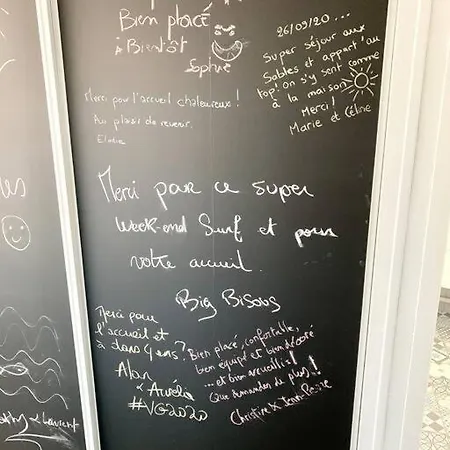 Bien placé
à Bientôt
Sophie
26/09/20...
Super séjour aux
Sables et appart' au
top! On s'y sent comme
à la maison
Merci!
Marie et Céline
Merci pour l'accueil chaleureux!
Au plaisir de revenir.
Elodie
Merci pour ce super
week-end Surf et pour
votre accueil.
Big Bisous
Merci pour
l'accueil et
à dans 4 ans?
Alan
& Aurélie
#VG2020
Bien placé, confortable,
bien équipé et bien décoré
... et bien accueillis!
Que demander de plus!!
Christine & Jean-Pierre
les
& Laurent